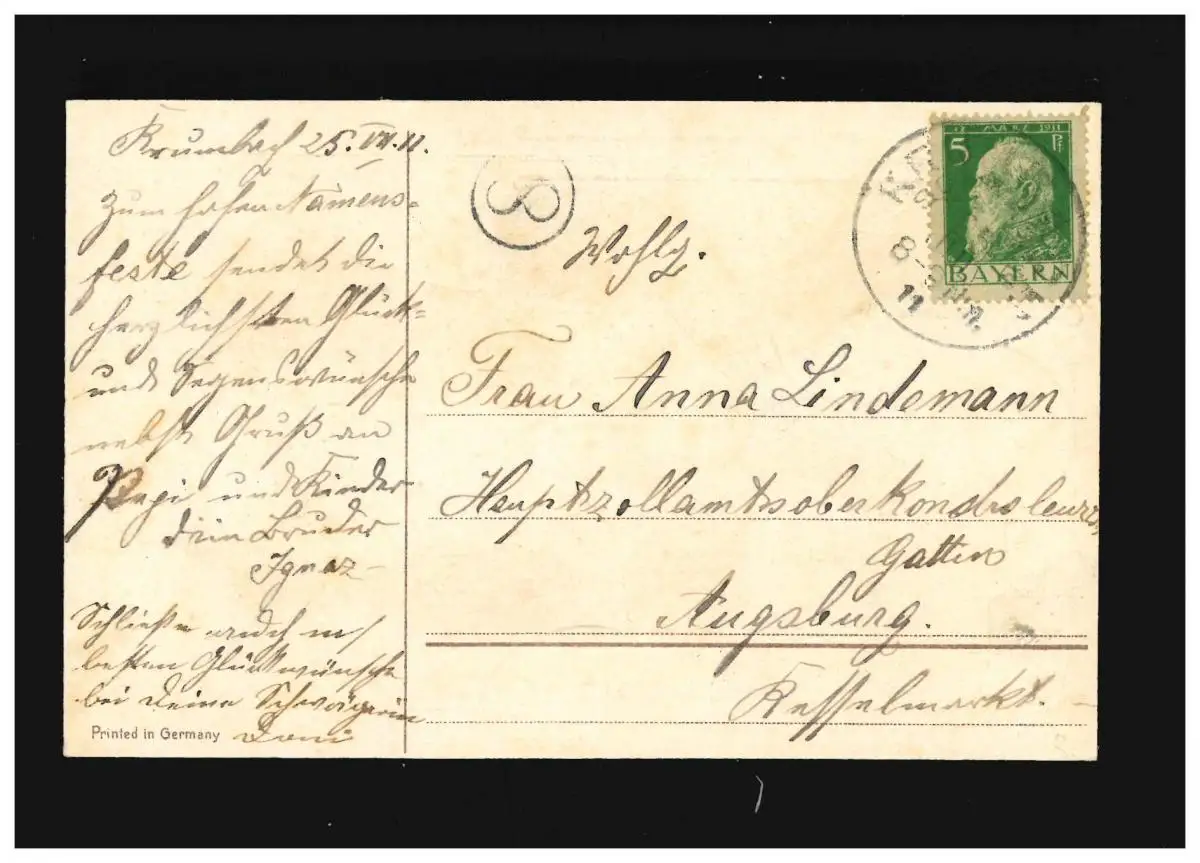 Krumbach 25. VII. 11.
Zum hohen Namens-
feste sendet die
herzlichsten Glück-
und Segenswünsche
nebst Gruß an
Pepi und Kinder
Dein Bruder
Ignaz
Schließe auch m/
besten Glückwünsche
bei Deine Schwägerin
Printed in Germany
8
Wohlg.
Frau Anna Lindemann
Hauptzollamtsoberkondroleurs
Gattin
Augsburg.
Kesselmarkt.
12 MÄRZ 1911
5 Pf
BAYERN
8-9 Vm.
11